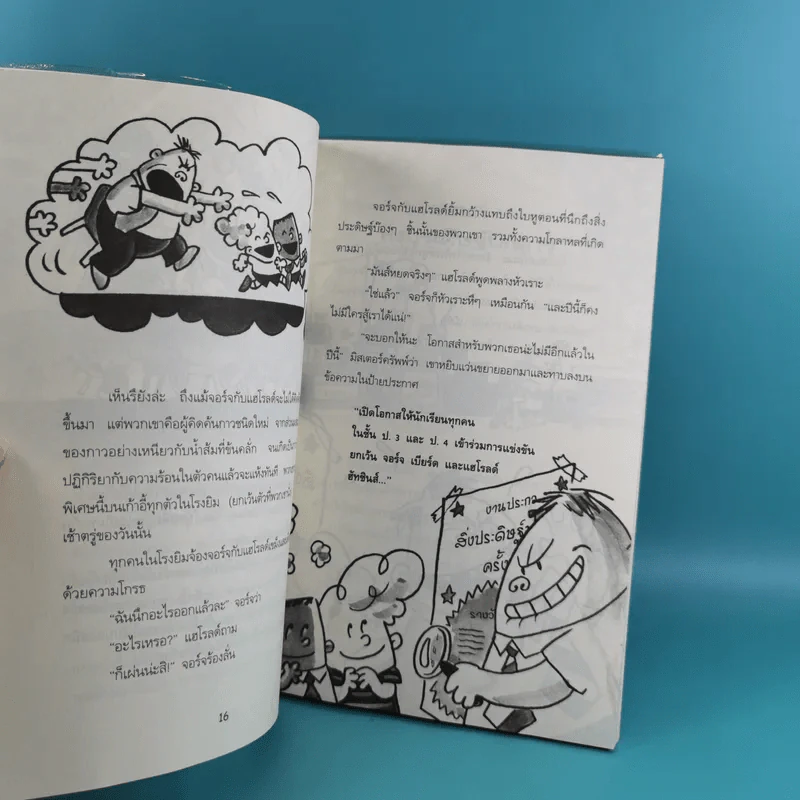 เห็นรึยังล่ะ ถึงแม้จอร์จกับแฮโรลด์จะไม่ได้
ขึ้นมา แต่พวกเขาคือผู้คิดค้นกาวชนิดใหม่
ของกาวอย่างเหนียวกับน้ำส้มที่ข้นคลั่ก จนเกิดเป็น
ปฏิกิริยากับความร้อนในตัวคนแล้วจะแห้งทันที
พิเศษนี้บนเก้าอี้ทุกตัวในโรงยิม (ยกเว้นตัวที่พวกเขา
เช้าตรู่ของวันนั้น
ทุกคนในโรงยิมจ้องจอร์จกับแฮโรลด์
ด้วยความโกรธ
"ฉันนึกอะไรออกแล้วละ" จอร์จว่า
"อะไรเหรอ?" แฮโรลด์ถาม
"ก็เผ่นน่ะสิ!" จอร์จร้องลั่น
16
จอร์จกับแฮโรลด์ยิ้มกว้างแทบถึงใบหูตอนที่นึกถึงสิ่ง
ประดิษฐ์บ๊องๆ ชิ้นนั้นของพวกเขา รวมทั้งความโกลาหลที่เกิด
ตามมา
"มันส์หยดจริงๆ" แฮโรลด์พูดพลางหัวเราะ
"ใช่แล้ว" จอร์จก็หัวเราะหึๆ เหมือนกัน "และปีนี้ก็คง
ไม่มีใครสู้เราได้แน่!"
"จะบอกให้นะ โอกาสสำหรับพวกเธอน่ะไม่มีอีกแล้วใน
ปีนี้" มิสเตอร์ครัพพ์ว่า เขาหยิบแว่นขยายออกมาและทาบลงบน
ข้อความในป้ายประกาศ
"เปิดโอกาสให้นักเรียนทุกคน
ในชั้น ป. 3 และ ป. 4 เข้าร่วมการแข่งขัน
ยกเว้น จอร์จ เบียร์ด และแฮโรลด์
ฮัทชินส์..."
งานประกว
สิ่งประดิษฐ์
ครั้ง
รางวั